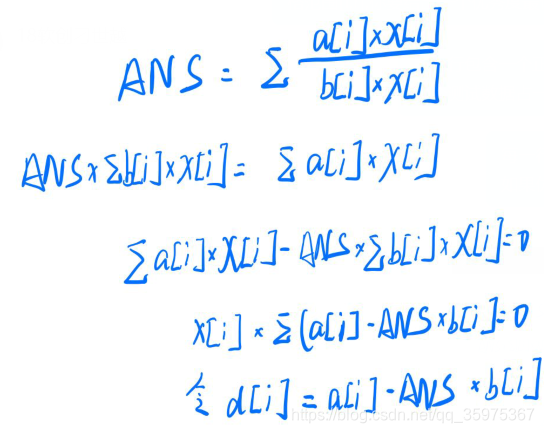 ANS = Σ a[i]×x[i] / b[i]×x[i]
ANS×Σb[i]×x[i] = Σ a[i]×x[i]
Σa[i]×x[i]-ANS×Σb[i]×x[i]=0
x[i]×Σ(a[i]-ANS×b[i]=0
令 d[i]=a[i]-ANS×b[i]
https://blog.csdn.net/qq_35975367